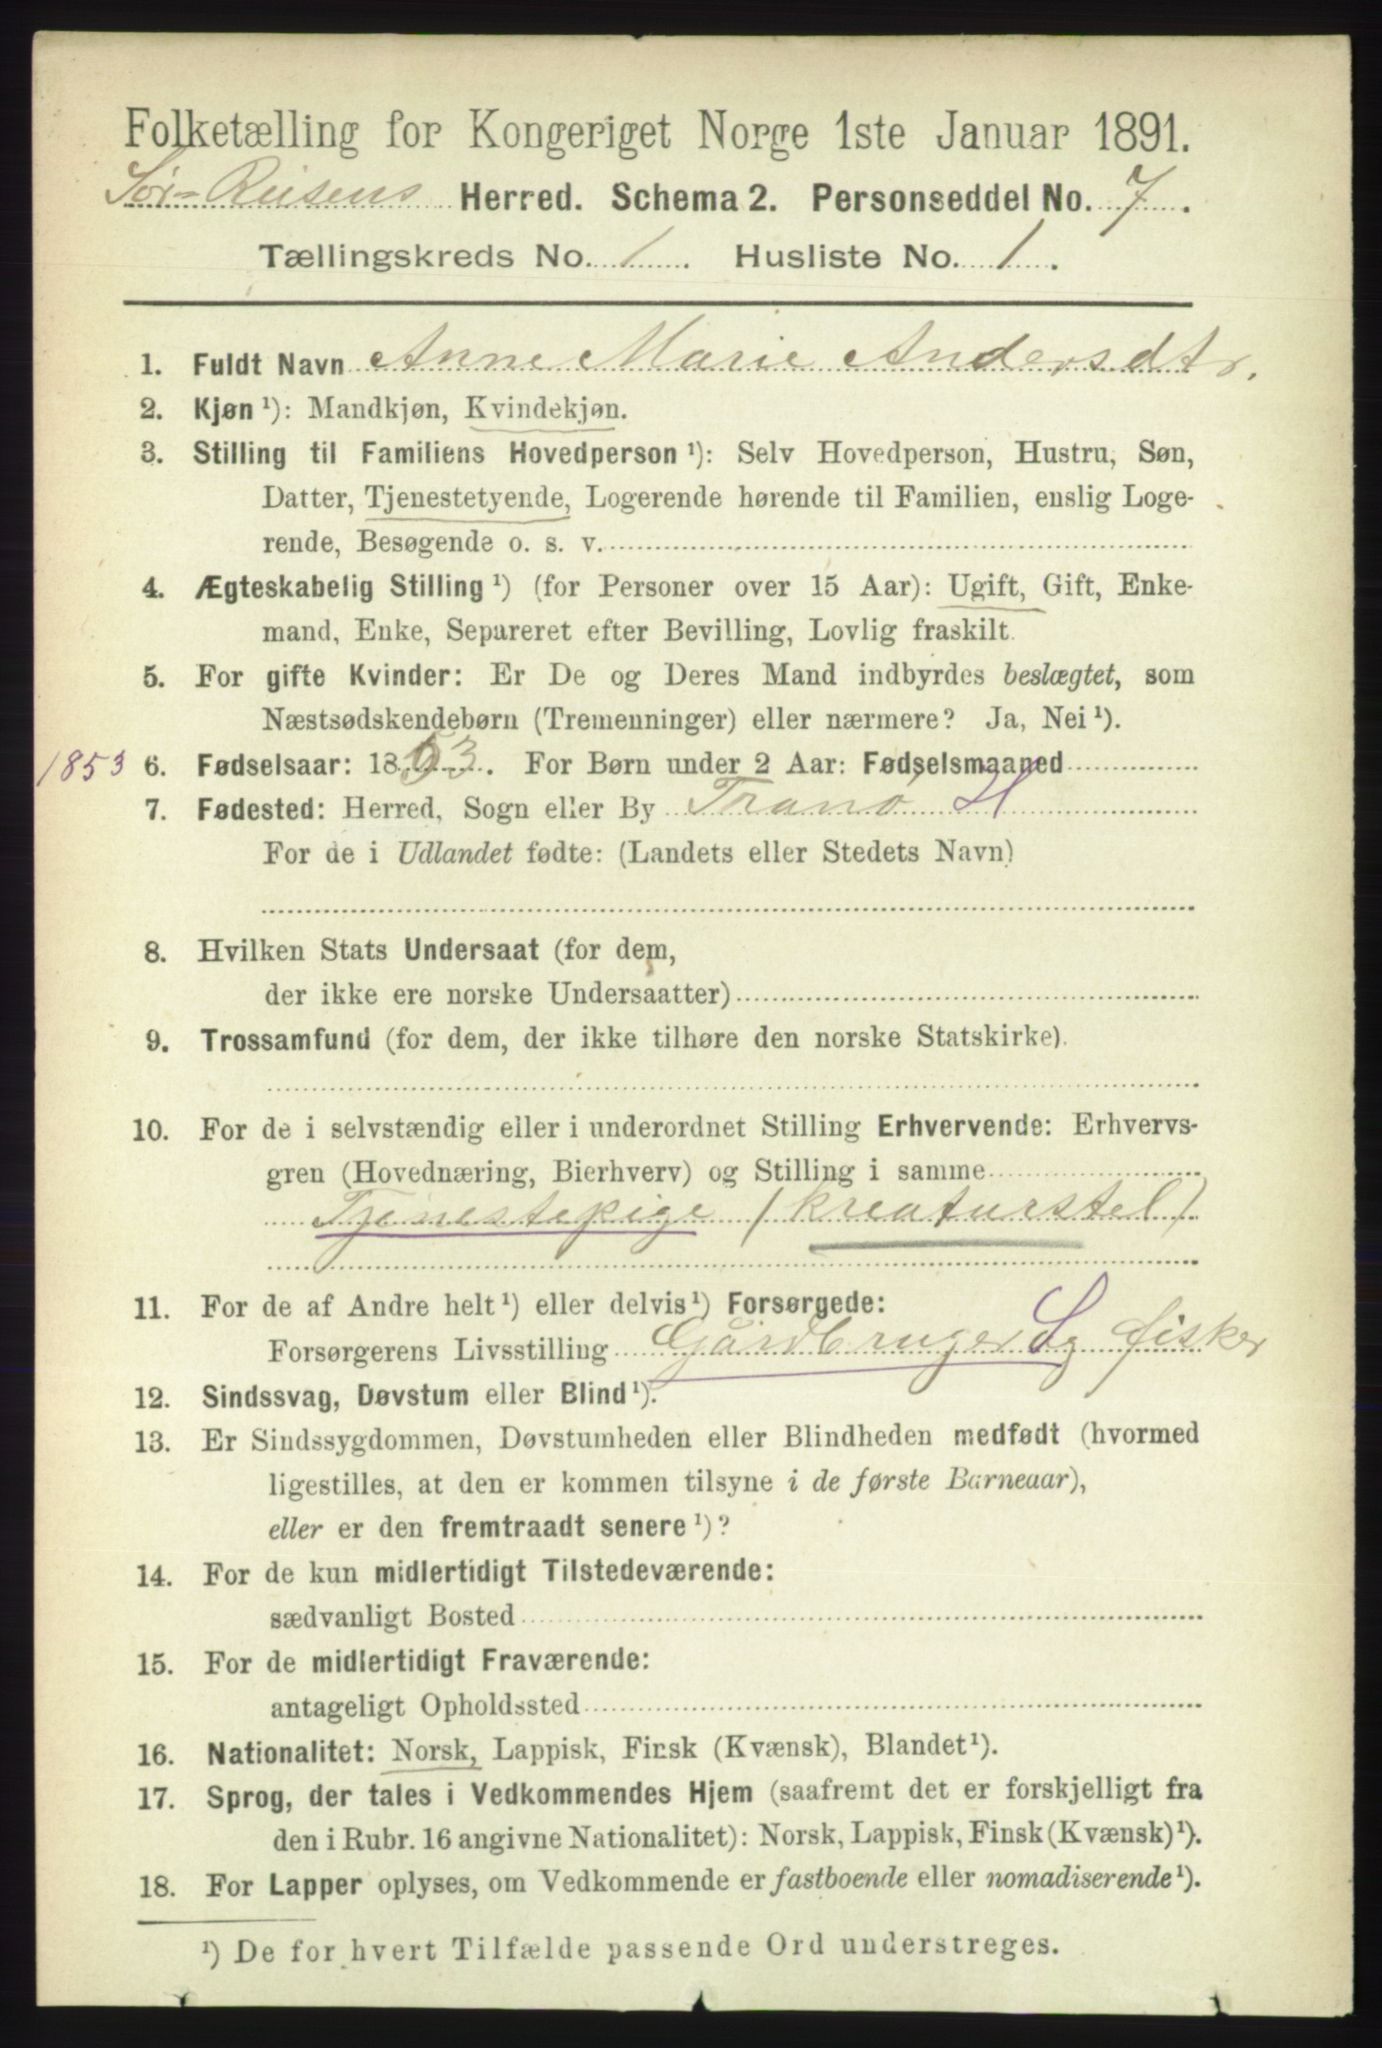 Folketælling for Kongeriget Norge 1ste Januar 1891.
Sør-Reisens Herred. Schema 2. Personseddel No. 7.
Tællingskreds No. 1. Husliste No. 1.
1. Fuldt Navn Anne Marie Andersdtr.
2. Kjøn ¹): Mandkjøn, Kvindekjøn.
3. Stilling til Familiens Hovedperson ¹): Selv Hovedperson, Hustru, Søn,
Datter, Tjenestetyende, Logerende hørende til Familien, enslig Loge-
rende, Besøgende o. s. v.
4. Ægteskabelig Stilling ¹) (for Personer over 15 Aar): Ugift, Gift, Enke-
mand, Enke, Separeret efter Bevilling, Lovlig fraskilt.
5. For gifte Kvinder: Er De og Deres Mand indbyrdes beslægtet, som
Næstsødskendebørn (Tremenninger) eller nærmere? Ja, Nei ¹).
1853 6. Fødselsaar: 1853. For Børn under 2 Aar: Fødselsmaaned
7. Fødested: Herred, Sogn eller By Tranø H
For de i Udlandet fødte: (Landets eller Stedets Navn)
8. Hvilken Stats Undersaat (for dem,
der ikke ere norske Undersaatter)
9. Trossamfund (for dem, der ikke tilhøre den norske Statskirke).
10. For de i selvstændig eller i underordnet Stilling Erhvervende: Erhvervs-
gren (Hovednæring, Bierhverv) og Stilling i samme
Tjenestepige (kreaturstel)
11. For de af Andre helt ¹) eller delvis ¹) Forsørgede:
Forsørgerens Livsstilling Gårdbruger S og fisker
12. Sindssvag, Døvstum eller Blind ¹).
13. Er Sindssygdommen, Døvstumheden eller Blindheden medfødt (hvormed
ligestilles, at den er kommen tilsyne i de første Barneaar),
eller er den fremtraadt senere ¹)?
14. For de kun midlertidigt Tilstedeværende:
sædvanligt Bosted
15. For de midlertidigt Fraværende:
antageligt Opholdssted
16. Nationalitet: Norsk, Lappisk, Finsk (Kvænsk), Blandet ¹).
17. Sprog, der tales i Vedkommendes Hjem (saafremt det er forskjelligt fra
den i Rubr. 16 angivne Nationalitet): Norsk, Lappisk, Finsk (Kvænsk) ¹).
18. For Lapper oplyses, om Vedkommende er fastboende eller nomadiserende ¹).
¹) De for hvert Tilfælde passende Ord understreges.